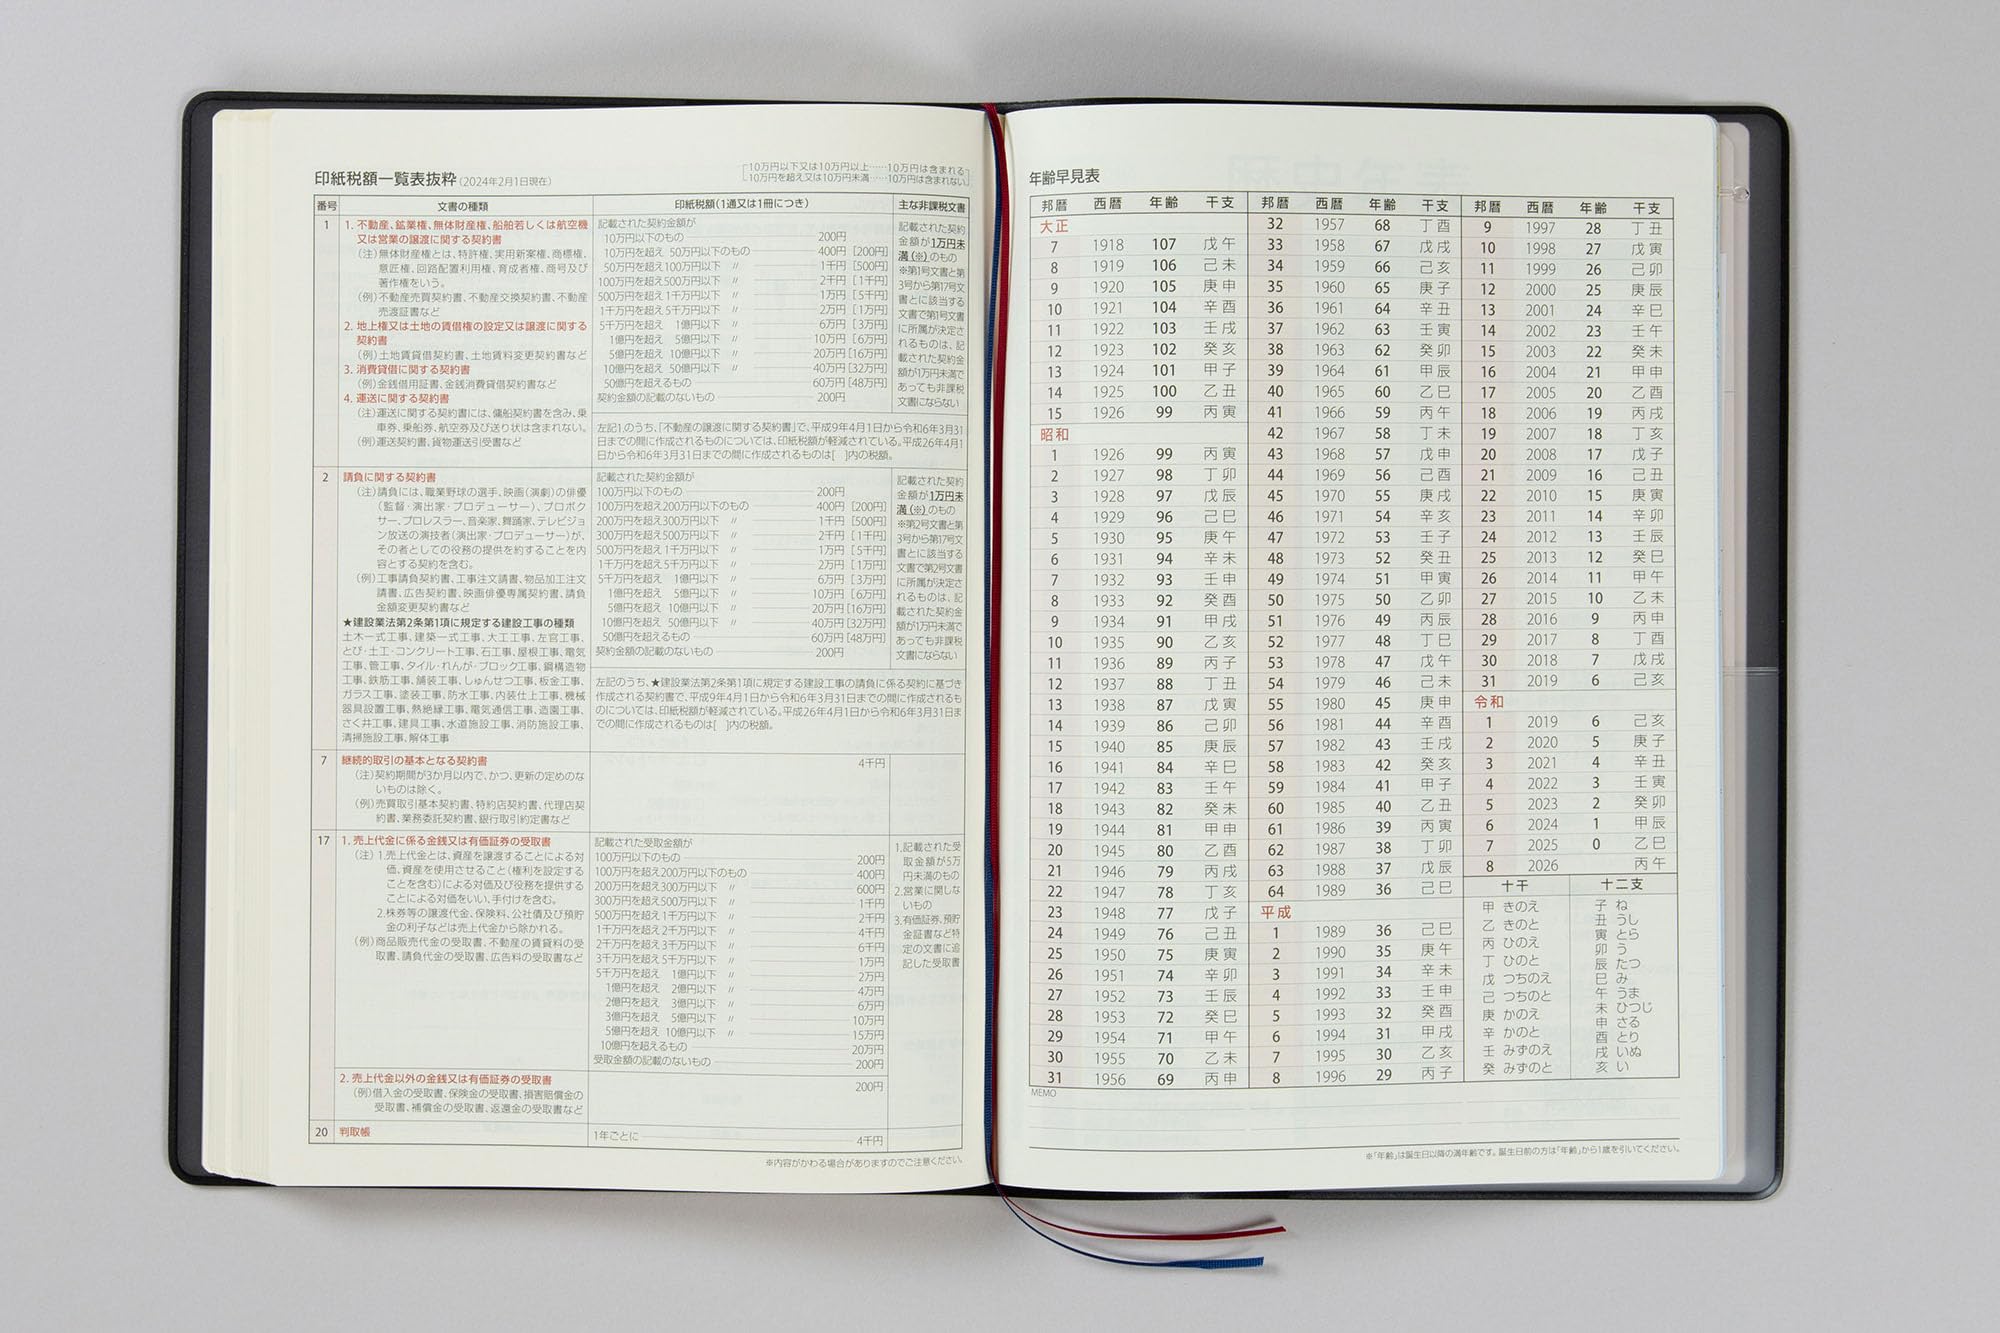 印紙税額一覧表抜粋(2024年2月1日現在)
10万円以下又は10万円以上……10万円は含まれる
10万円を超え又は10万円未満……10万円は含まれない
番号 文書の種類 印紙税額(1通又は1冊につき) 主な非課税文書
1
1. 不動産、鉱業権、無体財産権、船舶若しくは航空機
又は営業の譲渡に関する契約書
(注)無体財産権とは、特許権、実用新案権、商標権、
意匠権、回路配置利用権、育成者権、商号及び
著作権をいう。
(例)不動産売買契約書、不動産交換契約書、不動産
売渡証書など
2. 地上権又は土地の賃借権の設定又は譲渡に関する
契約書
(例)土地賃貸借契約書、土地賃料変更契約書など
3. 消費貸借に関する契約書
(例)金銭借用証書、金銭消費貸借契約書など
4. 運送に関する契約書
(注)運送に関する契約書には、傭船契約書を含み、乗
車券、乗船券、航空券及び送り状は含まれない。
(例)運送契約書、貨物運送引受書など
記載された契約金額が
10万円以下のもの 200円
10万円を超え 50万円以下のもの 400円 [200円]
50万円を超え100万円以下 〃 1千円 [500円]
100万円を超え500万円以下 〃 2千円 [1千円]
500万円を超え1千万円以下 〃 1万円 [5千円]
1千万円を超え5千万円以下 〃 2万円 [1万円]
5千万円を超え 1億円以下 〃 6万円 [3万円]
1億円を超え 5億円以下 〃 10万円 [6万円]
5億円を超え 10億円以下 〃 20万円 [16万円]
10億円を超え 50億円以下 〃 40万円 [32万円]
50億円を超えるもの 60万円 [48万円]
契約金額の記載のないもの 200円
左記1.のうち、「不動産の譲渡に関する契約書」で、平成9年4月1日から令和6年3月31
日までの間に作成されるものについては、印紙税額が軽減されている。平成26年4月1
日から令和6年3月31日までの間に作成されるものは[ ]内の税額。
記載された契約
金額が1万円未
満(※)のもの
※第1号文書と第
3号から第17号文
書とに該当する
文書で第1号文書
に所属が決定さ
れるものは、記
載された契約金
額が1万円未満で
あっても非課税
文書にならない
2
請負に関する契約書
(注)請負には、職業野球の選手、映画(演劇)の俳優
(監督・演出家・プロデューサー)、プロボク
サー、プロレスラー、音楽家、舞踊家、テレビジョ
ン放送の演技者(演出家・プロデューサー)が、
その者としての役務の提供を約することを内
容とする契約を含む。
(例)工事請負契約書、工事注文請書、物品加工注文
請書、広告契約書、映画俳優専属契約書、請負
金額変更契約書など
★建設業法第2条第1項に規定する建設工事の種類
土木一式工事、建築一式工事、大工工事、左官工事、
とび・土工・コンクリート工事、石工事、屋根工事、電気
工事、管工事、タイル・れんが・ブロック工事、鋼構造物
工事、鉄筋工事、舗装工事、しゅんせつ工事、板金工事、
ガラス工事、塗装工事、防水工事、内装仕上工事、機械
器具設置工事、熱絶縁工事、電気通信工事、造園工事、
さく井工事、建具工事、水道施設工事、消防施設工事、
清掃施設工事、解体工事
記載された契約金額が
100万円以下のもの 200円
100万円を超え200万円以下のもの 400円 [200円]
200万円を超え300万円以下 〃 1千円 [500円]
300万円を超え500万円以下 〃 2千円 [1千円]
500万円を超え1千万円以下 〃 1万円 [5千円]
1千万円を超え5千万円以下 〃 2万円 [1万円]
5千万円を超え 1億円以下 〃 6万円 [3万円]
1億円を超え 5億円以下 〃 10万円 [6万円]
5億円を超え 10億円以下 〃 20万円 [16万円]
10億円を超え 50億円以下 〃 40万円 [32万円]
50億円を超えるもの 60万円 [48万円]
契約金額の記載のないもの 200円
左記のうち、★建設業法第2条第1項に規定する建設工事の請負に係る契約に基づき
作成される契約書で、平成9年4月1日から令和6年3月31日までの間に作成されるも
のについては、印紙税額が軽減されている。平成26年4月1日から令和6年3月31日ま
での間に作成されるものは[ ]内の税額。
記載された契約
金額が1万円未
満(※)のもの
※第2号文書と第
3号から第17号文
書とに該当する
文書で第2号文書
に所属が決定さ
れるものは、記
載された契約金
額が1万円未満で
あっても非課税
文書にならない
7
継続的取引の基本となる契約書 4千円
(注)契約期間が3か月以内で、かつ、更新の定めのな
いものは除く。
(例)売買取引基本契約書、特約店契約書、代理店契
約書、業務委託契約書、銀行取引約定書など
17
1. 売上代金に係る金銭又は有価証券の受取書
(注) 1.売上代金とは、資産を譲渡することによる対
価、資産を使用させること(権利を設定する
ことを含む)による対価及び役務を提供する
ことによる対価をいい、手付けを含む。
2.株券等の譲渡代金、保険料、公社債及び預貯
金の利子などは売上代金から除かれる。
(例)商品販売代金の受取書、不動産の賃貸料の受
取書、請負代金の受取書、広告料の受取書など
記載された受取金額が
100万円以下のもの 200円
100万円を超え200万円以下のもの 400円
200万円を超え300万円以下 〃 600円
300万円を超え500万円以下 〃 1千円
500万円を超え1千万円以下 〃 2千円
1千万円を超え2千万円以下 〃 4千円
2千万円を超え3千万円以下 〃 6千円
3千万円を超え5千万円以下 〃 1万円
5千万円を超え 1億円以下 〃 2万円
1億円を超え 2億円以下 〃 4万円
2億円を超え 3億円以下 〃 6万円
3億円を超え 5億円以下 〃 10万円
5億円を超え 10億円以下 〃 15万円
10億円を超えるもの 20万円
受取金額の記載のないもの 200円
1.記載された受
取金額が5万
円未満のもの
2.営業に関しな
いもの
3.有価証券、預貯
金証書など特
定の文書に追
記した受取書
2. 売上代金以外の金銭又は有価証券の受取書 200円
(例)借入金の受取書、保険金の受取書、損害賠償金の
受取書、補償金の受取書、返還金の受取書など
20 判取帳 1年ごとに 4千円
※内容がかわる場合がありますのでご注意ください。
年齢早見表
邦暦 西暦 年齢 干支
大正
7 1918 107 戊午
8 1919 106 己未
9 1920 105 庚申
10 1921 104 辛酉
11 1922 103 壬戌
12 1923 102 癸亥
13 1924 101 甲子
14 1925 100 乙丑
15 1926 99 丙寅
昭和
1 1926 99 丙寅
2 1927 98 丁卯
3 1928 97 戊辰
4 1929 96 己巳
5 1930 95 庚午
6 1931 94 辛未
7 1932 93 壬申
8 1933 92 癸酉
9 1934 91 甲戌
10 1935 90 乙亥
11 1936 89 丙子
12 1937 88 丁丑
13 1938 87 戊寅
14 1939 86 己卯
15 1940 85 庚辰
16 1941 84 辛巳
17 1942 83 壬午
18 1943 82 癸未
19 1944 81 甲申
20 1945 80 乙酉
21 1946 79 丙戌
22 1947 78 丁亥
23 1948 77 戊子
24 1949 76 己丑
25 1950 75 庚寅
26 1951 74 辛卯
27 1952 73 壬辰
28 1953 72 癸巳
29 1954 71 甲午
30 1955 70 乙未
31 1956 69 丙申
邦暦 西暦 年齢 干支
32 1957 68 丁酉
33 1958 67 戊戌
34 1959 66 己亥
35 1960 65 庚子
36 1961 64 辛丑
37 1962 63 壬寅
38 1963 62 癸卯
39 1964 61 甲辰
40 1965 60 乙巳
41 1966 59 丙午
42 1967 58 丁未
43 1968 57 戊申
44 1969 56 己酉
45 1970 55 庚戌
46 1971 54 辛亥
47 1972 53 壬子
48 1973 52 癸丑
49 1974 51 甲寅
50 1975 50 乙卯
51 1976 49 丙辰
52 1977 48 丁巳
53 1978 47 戊午
54 1979 46 己未
55 1980 45 庚申
56 1981 44 辛酉
57 1982 43 壬戌
58 1983 42 癸亥
59 1984 41 甲子
60 1985 40 乙丑
61 1986 39 丙寅
62 1987 38 丁卯
63 1988 37 戊辰
64 1989 36 己巳
平成
1 1989 36 己巳
2 1990 35 庚午
3 1991 34 辛未
4 1992 33 壬申
5 1993 32 癸酉
6 1994 31 甲戌
7 1995 30 乙亥
8 1996 29 丙子
邦暦 西暦 年齢 干支
9 1997 28 丁丑
10 1998 27 戊寅
11 1999 26 己卯
12 2000 25 庚辰
13 2001 24 辛巳
14 2002 23 壬午
15 2003 22 癸未
16 2004 21 甲申
17 2005 20 乙酉
18 2006 19 丙戌
19 2007 18 丁亥
20 2008 17 戊子
21 2009 16 己丑
22 2010 15 庚寅
23 2011 14 辛卯
24 2012 13 壬辰
25 2013 12 癸巳
26 2014 11 甲午
27 2015 10 乙未
28 2016 9 丙申
29 2017 8 丁酉
30 2018 7 戊戌
31 2019 6 己亥
令和
1 2019 6 己亥
2 2020 5 庚子
3 2021 4 辛丑
4 2022 3 壬寅
5 2023 2 癸卯
6 2024 1 甲辰
7 2025 0 乙巳
8 2026 丙午
十干
甲 きのえ
乙 きのと
丙 ひのえ
丁 ひのと
戊 つちのえ
己 つちのと
庚 かのえ
辛 かのと
壬 みずのえ
癸 みずのと
十二支
子 ね
丑 うし
寅 とら
卯 う
辰 たつ
巳 み
午 うま
未 ひつじ
申 さる
酉 とり
戌 いぬ
亥 い
MEMO
※「年齢」は誕生日以降の満年齢です。誕生日前の方は「年齢」から1歳を引いてください。